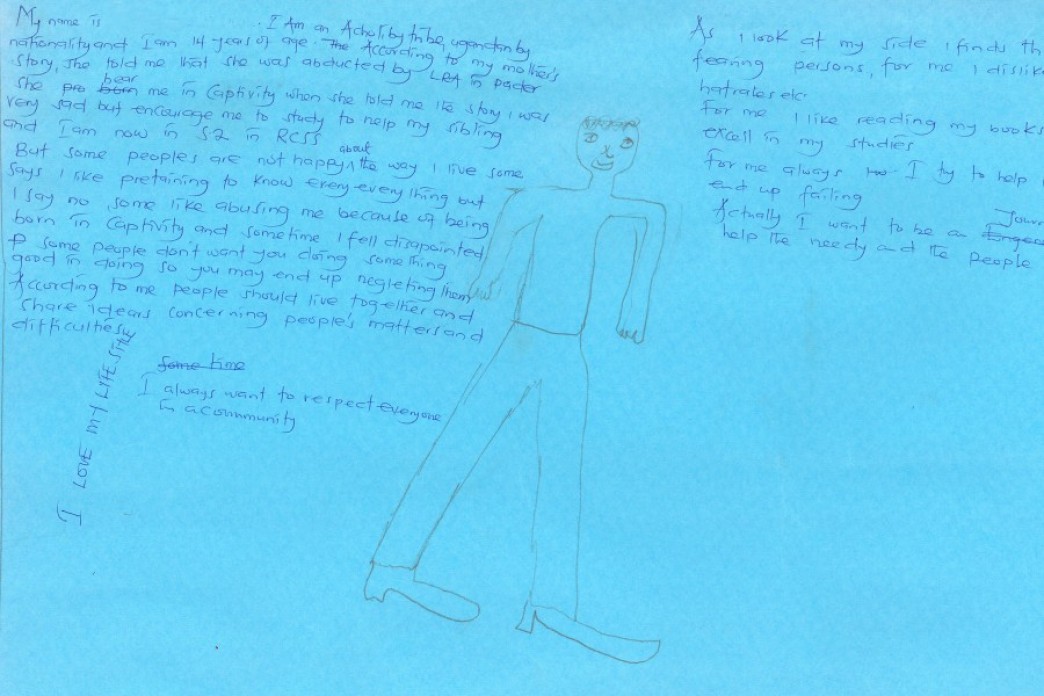 My name is
. I Am an Acholi by tribe, ugandan by
nationality and I am 14 years of age. The According to my mother's
story, she told me that she was abducted by LRA in pader
she pro born bear me in Captivity when she told me the story i was
very sad but encourage me to study to help my sibling
and I am now in S2 in RCSS
But some peoples are not happy about the way I live some
says I like pretaining to know every everything but
I say no some like abusing me because of being
born in Captivity and sometime I fell disapointed
some people don't want you doing something
good in doing so you may end up negleting them
According to me people should live together and
Share idears concerning people's matters and
difficulties
some time
I always want to respect everyone
in a community
I LOVE MY LIFE STYLE
As I look at my side i finds th
fearing persons, for me I dislik
hatrates etc.
For me I like reading my books
excell in my studies
For me always I try to help
end up failing
Actually I want to be an Jour
help the needy and the people